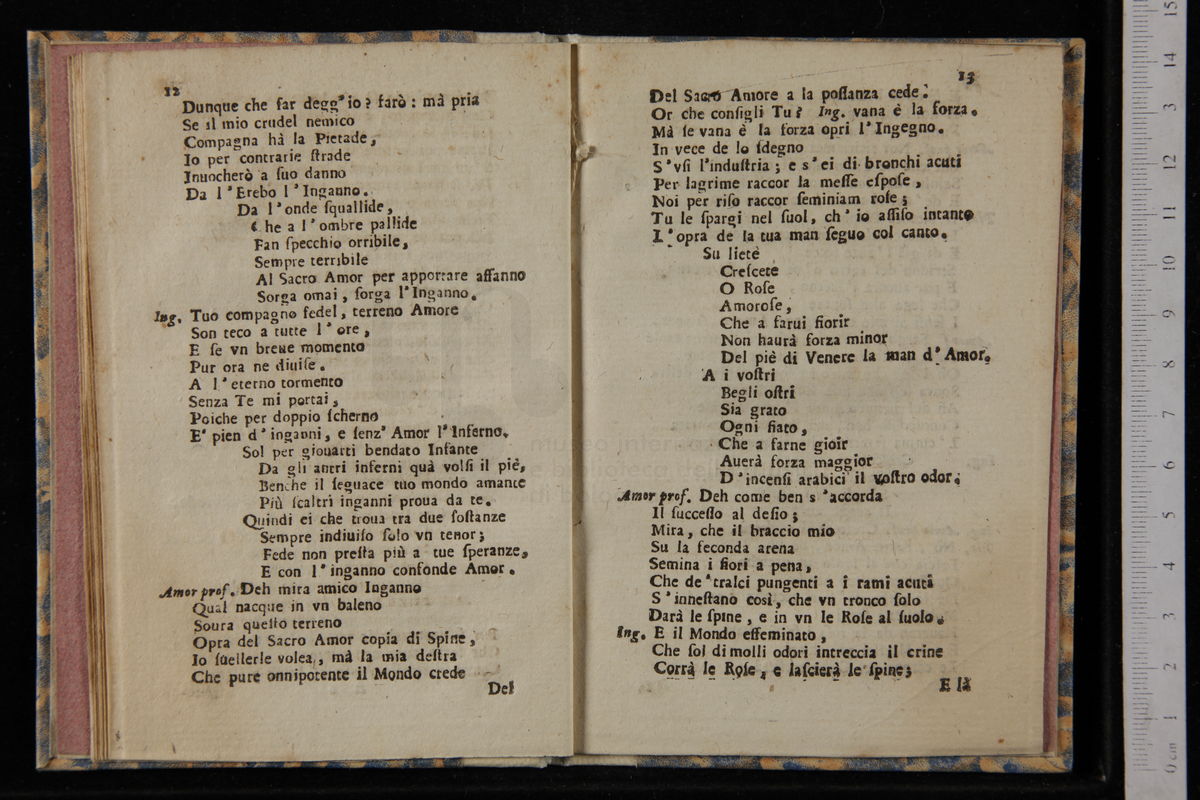 12
Dunque che far degg'io? farò: mà pria
Se il mio crudel nemico
Compagna hà la Pietade,
Io per contrarie ſtrade
Inuocherò a ſuo danno
Da l'Erebo l'Inganno.
Da l'onde ſquallide,
Che a l'ombre pallide
Fan ſpecchio orribile,
Sempre terribile
Al Sacro Amor per apportare affanno
Sorga omai, ſorga l'Inganno.
Ing. Tuo compagno fedel, terreno Amore
Son teco a tutte l'ore,
E ſe vn breue momento
Pur ora ne diuiſe.
A l'eterno tormento
Senza Te mi portai,
Poiche per doppio ſcherno
E' pien d'inganni, e ſenz' Amor l'Inferno.
Sol per giouarti bendato Infante
Da gli antri inferni quà volſi il piè,
Benche il ſeguace tuo mondo amante
Più ſcaltri inganni proua da te.
Quindi ei che troua tra due ſoſtanze
Sempre indiuiſo ſolo vn tenor;
Fede non preſta più a tue ſperanze,
E con l'inganno confonde Amor.
Amor prof. Deh mira amico Inganno
Qual nacque in vn baleno
Soura queſto terreno
Opra del Sacro Amor copia di Spine,
Io ſuellerle volea, mà la mia deſtra
Che pure onnipotente il Mondo crede
Del
13
Del Sacro Amore a la poſſanza cede.
Or che conſigli Tu? Ing. vana è la forza.
Mà ſe vana è la forza opri l'Ingegno.
In vece de lo ſdegno
S'vſi l'induſtria; e s'ei di bronchi acuti
Per lagrime raccor la meſſe eſpoſe,
Noi per riſo raccor ſeminiam roſe;
Tu le ſpargi nel ſuol, ch'io aſſiſo intanto
L'opra de la tua man ſeguo col canto.
Su liete
Creſcete
O Roſe
Amoroſe,
Che a farui fiorir
Non haurà forza minor
Del piè di Venere la man d'Amor.
A i voſtri
Begli oſtri
Sia grato
Ogni fiato,
Che a farne gioir
Auerà forza maggior
D'incenſi arabici il voſtro odor.
Amor prof. Deh come ben s'accorda
Il ſucceſſo al deſio;
Mira, che il braccio mio
Su la feconda arena
Semina i fiori a pena,
Che de' tralci pungenti a i rami acuti
S'inneſtano così, che vn tronco ſolo
Darà le ſpine, e in vn le Roſe al ſuolo.
Ing. E il Mondo effeminato,
Che ſol di molli odori intreccia il crine
Corrà le Roſe, e laſcierà le ſpine;
E là